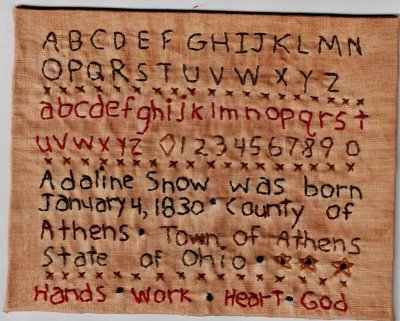 A B C D E F G H I J K L M N
O P Q R S T U V W X Y Z
a b c d e f g h i j k l m n o p q r s t
u v w x y z 0 1 2 3 4 5 6 7 8 9 0
Adaline Snow was born
January 4, 1830 • County of
Athens • Town of Athens
State of Ohio •
Hands • Work • Heart • God